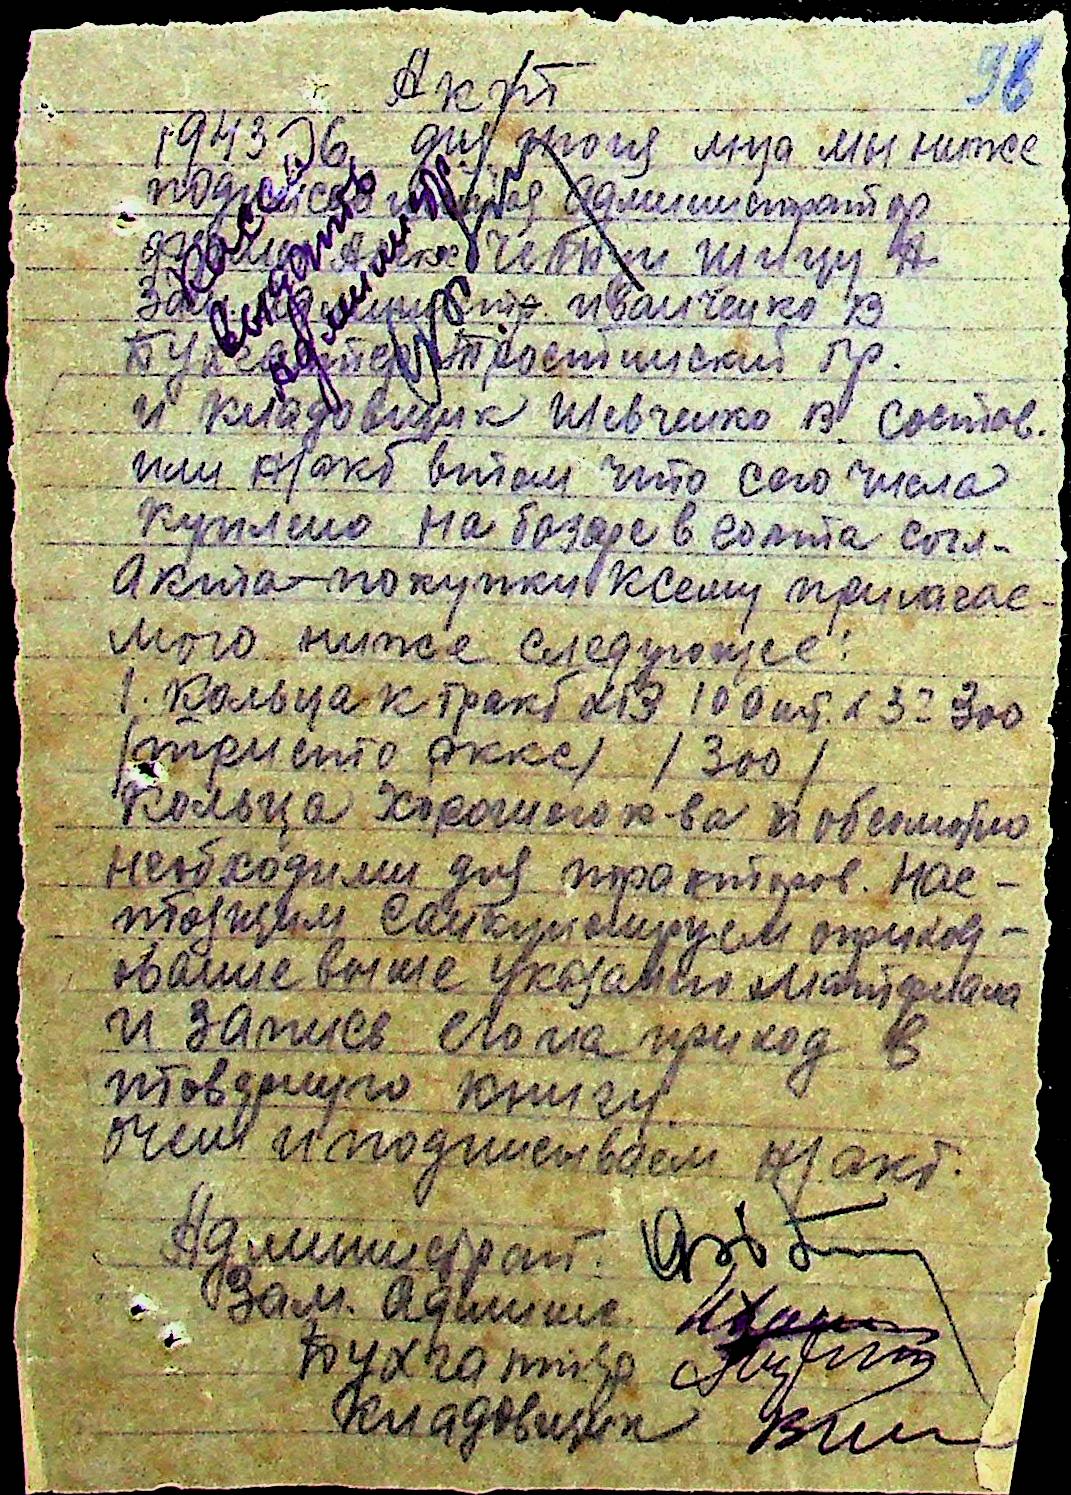 98
Акт
1943 6 дня июля м-ца мы ниже
подписавшийся Администратор
Зам. Админист. Иванченко В
Бухгалтер Тростинский Гр.
и кладовщик Шевченко В. состав.
или н/акт в том что сего числа
куплено на базаре в согл-
Акта покупки к сему прилагае-
мого ниже следующее:
1. Кольца к тракт ХТЗ 100 шт. х 3= 300
/триста / 300 /
Кольца хорошего к-ва и
необходими для тракторов. Нас-
тоящим оприход-
ование выше указаного материала
и запись его на приход в
товарную книгу
о чем и подписываем н/акт.
Касса
выдать
Администрат.
Зам. Админис.
Бухгалтер
Кладовщик